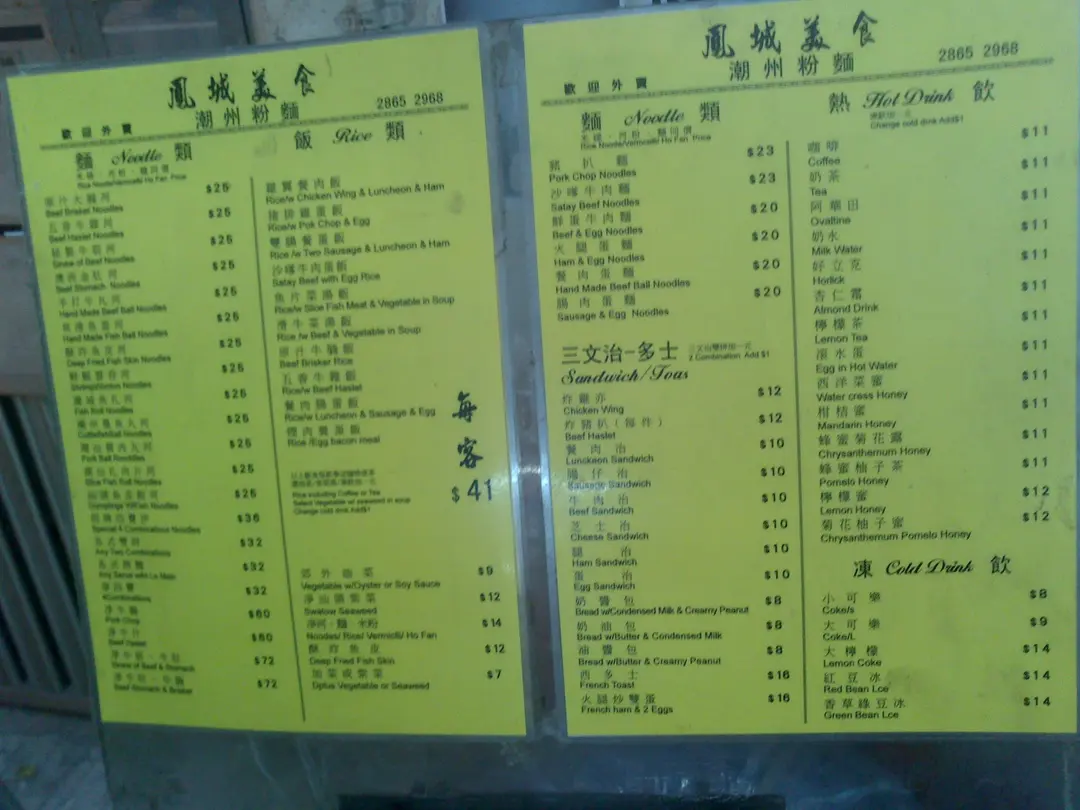 鳳城美食
潮州粉麵
2865 2968
歡迎外賣
麵 Noodle 類
飯 Rice 類
米綫、河粉、麵同價
Rice Noodle/Vermicelli/ Ho Fan Price
$25
Beef Brisket Noodles
$25
Beef Haslet Noodles
$25
Sinew of Beef Noodles
$25
Beef Stomach Noodles
$25
手打牛丸河
Hand Made Beef Ball Noodles
$25
Hand Made Fish Ball Noodles
$25
Deep Fried Fish Skin Noodles
$25
$25
Fish Ball Noodles
$25
$25
Pork Ball Noodles
$25
Slice Fish Ball Noodles
$25
$36
Special 4 Combinations Noodles
$32
各式雙拼
Any Two Combinations
$32
$32
$60
淨牛腩
$60
$72
Sinew of Beef & Stomach
$72
Beef Stomach & Brisket
Rice/w Chicken Wing & Luncheon & Ham
豬排雞蛋飯
Rice/w Pok Chop & Egg
雙腸餐蛋飯
Rice /w Two Sausage & Luncheon & Ham
沙嗲牛肉蛋飯
Satay Beef with Egg Rice
魚片菜湯飯
Rice/w Slice Fish Meat & Vegetable in Soup
滑牛菜湯飯
Rice /w Beef & Vegetable in Soup
原汁牛腩飯
Beef Brisker Rice
五香牛雜飯
Rice/w Beef Haslet
餐肉腸蛋飯
Rice/w Luncheon & Sausage & Egg
煙肉雙蛋飯
Rice /Egg bacon meal
每客
$41
Rice including Coffee or Tea
Select Vegetable w/ seaweed in soup
Change cold drink Add$1
郊外油菜 $9
Vegetable w/Oyster or Soy Sauce
淨汕頭紫菜 $12
Swatow Seaweed
淨河、麵、米粉 $14
Noodes/ Rice/ Vermicilli/ Ho Fan
酥炸魚皮 $12
Deep Fried Fish Skin
加菜或紫菜 $7
Dplus Vegetable or Seaweed
鳳城美食
潮州粉麵
2865 2968
歡迎外賣
麵 Noodle 類
米綫、河粉、麵同價
Rice Noodle/Vermicelli/ Ho Fan Price
豬扒麵 $23
Pork Chop Noodles
沙嗲牛肉麵 $23
Satay Beef Noodles
鮮蛋牛肉麵 $20
Beef & Egg Noodles
火腿蛋麵 $20
Ham & Egg Noodles
餐肉蛋麵 $20
Hand Made Beef Ball Noodles
腸肉蛋麵 $20
Sausage & Egg Noodles
三文治-多士
三文治雙拼加一元
2 Combination Add $1
Sandwich/Toas
炸雞亦 $12
Chicken Wing
炸豬扒(每件) $12
Beef Haslet
餐肉治 $10
Luncheon Sandwich
腸仔治 $10
Sausage Sandwich
牛肉治 $10
Beef Sandwich
芝士治 $10
Cheese Sandwich
腿治 $10
Ham Sandwich
蛋治 $10
Egg Sandwich
奶醬包 $8
Bread w/Condensed Milk & Creamy Peanut
奶油包 $8
Bread w/Butter & Condensed Milk
油醬包 $8
Bread w/Butter & Creamy Peanut
西多士 $16
French Toast
火腿炒雙蛋 $16
French ham & 2 Eggs
熱 Hot Drink 飲
Change cold dink Add$1
咖啡 $11
Coffee
奶茶 $11
Tea
阿華田 $11
Ovaltine
奶水 $11
Milk Water
好立克 $11
Horlick
杏仁霜 $11
Almond Drink
檸檬茶 $11
Lemon Tea
滾水蛋 $11
Egg in Hot Water
西洋菜蜜 $11
Water cress Honey
柑桔蜜 $11
Mandarin Honey
蜂蜜菊花露 $11
Chrysanthemum Honey
蜂蜜柚子茶 $11
Pomelo Honey
檸檬蜜 $12
Lemon Honey
菊花柚子蜜 $12
Chrysanthemum Pomelo Honey
凍 Cold Drink 飲
小可樂 $8
Coke/s
大可樂 $9
Coke/L
大檸檬 $14
Lemon Coke
紅豆冰 $14
Red Bean Lce
香草綠豆冰 $14
Green Bean Lce